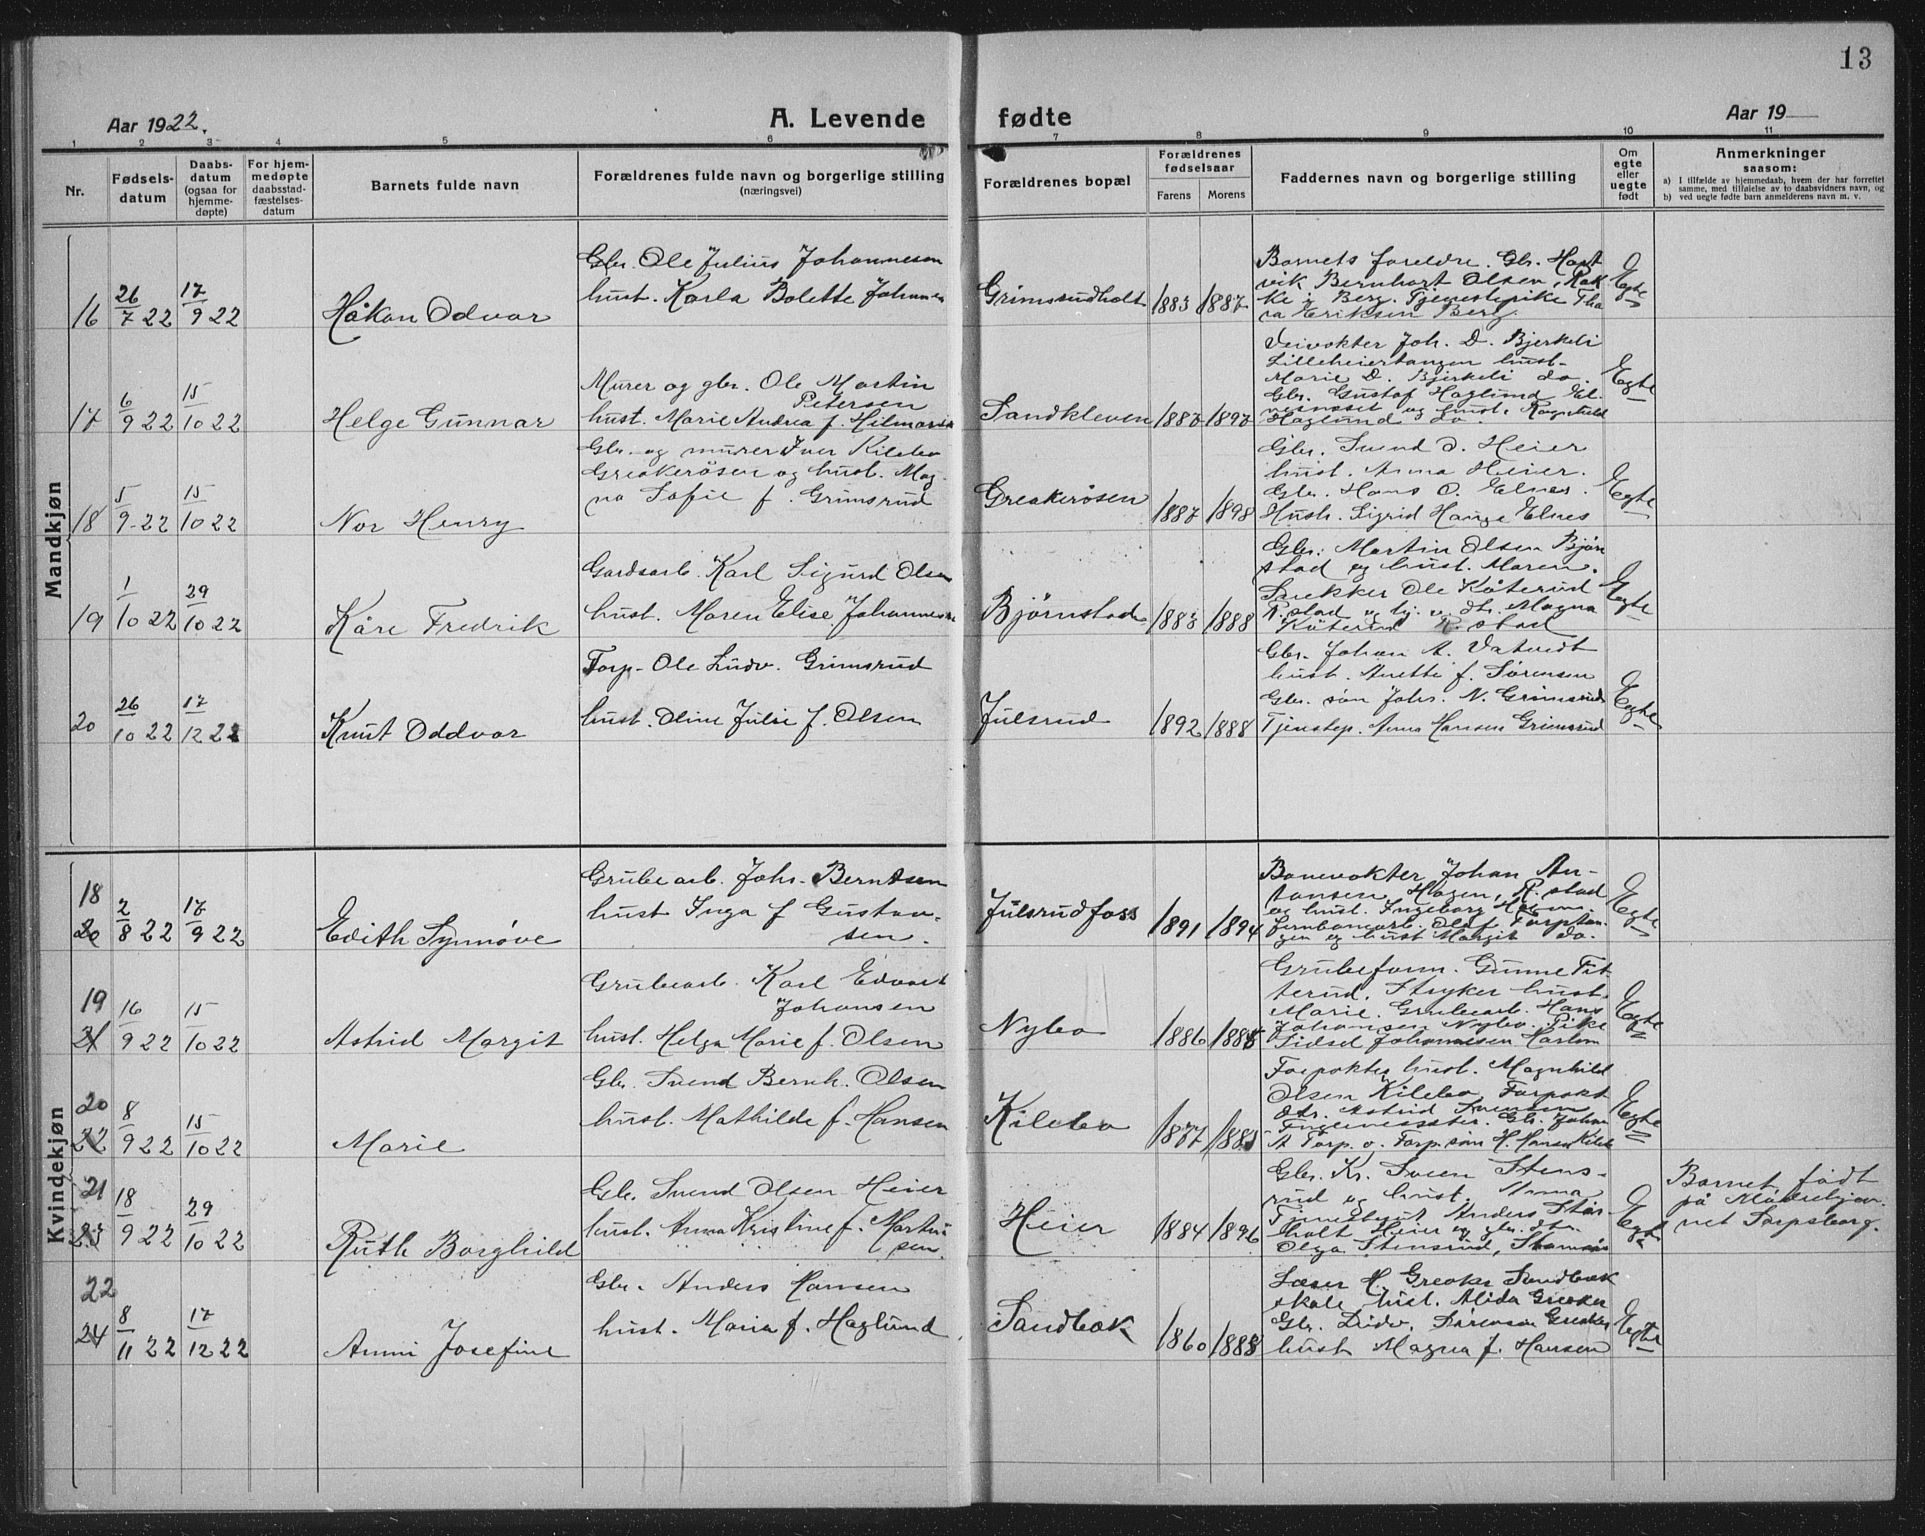 13
Aar 1922.
A. Levende fødte
Aar 19
1 2 3 4 5 6 7 8 9 10 11
Nr.
Fødsels-
datum
Daabs-
datum
(ogsaa for
hjemme-
døpte)
For hjem-
medøpte
daabsstad-
fæstelses-
datum
Barnets fulde navn
Forældrenes fulde navn og borgerlige stilling
(næringsvei)
Forældrenes bopæl
Forældrenes
fødselsaar
Farens Morens
Faddernes navn og borgerlige stilling
Om
egte
eller
uegte
født
Anmerkninger
saasom:
a) I tilfælde av hjemmedaab, hvem der har forrettet
samme, med tilføielse av to daabsvidners navn, og
b) ved uegte fødte barn anmelderens navn m. v.
Mandkjøn
16 26/7 22 17/9 22 Håkon Odvar
Gbr. Ole Julius Johannesen
hust. Karla Bolette Johannes
Grimsrudholt 1883 1887
Barnets foreldre. Gbr. Hart
vik Bernhart Olsen, Rak
ke i Berg. Tjenestepike Tho
ra Eriksen Berg.
Egte
17 6/9 22 15/10 22 Helge Gunnar
Murer og gbr. Ole Martin
Petersen
hust. Marie Andrea f. Hilmarsen
Sandkleven 1887 1897
Veivokter Joh. D. Bjerkeli
Lilleheiertangen hust.
Marie D. Bjerkeli do.
Gbr. Gustaf Haglund El-
vesnæset og hust. Ragnhild
Haglund do.
Egte
18 5/9 22 15/10 22 Nor Henry
Gbr. og murer Iver Kilebo
Greakerøsen og hust. Mag
na Sofie f. Grimsrud
Greakerøsen 1887 1898
Gbr. Svend O. Heier
hust. Anna Heier.
Gbr. Hans O. Elnes.
Hush. Sigrid Hauge Elnes
Egte
19 1/10 22 29/10 22 Kåre Fredrik
Gardsarb. Karl Sigurd Olsen
hust. Maren Elise Johannesen
Bjørnstad 1883 1888
Gbr. Martin Olsen Bjørn
stad og hust. Maren.
Snekker Ole Käterud
R.stad og hj. v. dtr. Magna
Käterud R. stad
Egte
20 26/10 22 17/12 22 Knut Oddvar
Forp. Ole Ludv. Grimsrud
hust. Oline Julie f. Olsen
Julsrud 1892 1888
Gbr. Johan A. Vatvedt
hust. Anette f. Sørensen
Gbr. søn Johs. N. Grimsrud
Tjenstep. Anna Hansen Grimsrud
Egte
Kvindekjøn
18 20 2/8 22 17/9 22 Edith Synnøve
Grubearb. Johs. Berntsen
hust Inga f Gustav-
sen.
Julsrudfoss 1891 1894
Banevokter Johan An-
tonsen Hagen, R. stad
og hust. Ingeborg Hagen.
Jernbanearb. Olaf Torpstan-
gen og hust Margit do.
Egte
19 21 16/9 22 15/10 22 Astrid Margit
Grubearb. Karl Edvart
Johansen
hust. Helga Marie f. Olsen
Nybo 1886 1888
Grubeform. Gunne Tit-
terud. Stryker hust.
Marie. Grubearb. Hans
Johansen Nybo. Pike
Sidsel Johannesen
Egte
20 22 8/9 22 15/10 22 Marie
Gbr. Svend Bernh. Olsen
hust. Mathilde f. Hansen
Kilebo 1877 1883
Forpakter hust. Magnhild
Olsen Kilebo. Forpakt
dtr. Astrid Svensen
Gbr. Johan
A Torp o. Forp. søn H. Hansen Kilebo
Egte
21 23 18/9 22 29/10 22 Ruth Borghild
Gbr. Svend Olsen Heier
hust. Anna Kristine f. Martin
sen.
Heier 1884 1896
Gbr. Kr. Svein Stens-
rud og hust. Anna
Tjenestegut Anders Stor-
holt Heier og gbr. dtr.
Olga Stensrud,
Egte
Barnet født
på Mødrehjem-
met Sarpsborg.
22 24 8/11 22 17/12 22 Anni Josefine
Gbr. Anders Hansen
hust. Maria f. Haglund
Sandbæk 1860 1888
Lærer H. Greaker Sandbæk
skole hust. Alida Greaker
Gbr. Ludv. Sørensen Greaker
hust Magna f. Hansen
Egte